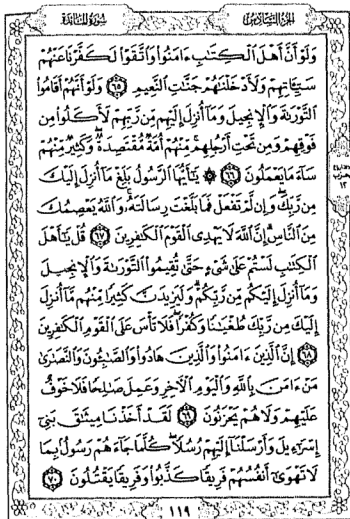 الجزء السادس
سورة المائدة
وَلَوْ أَنَّ أَهْلَ الْكِتَٰبِ ءَامَنُوا وَاتَّقَوْا لَكَفَّرْنَا عَنْهُمْ
سَيِّـَٔاتِهِمْ وَلَأَدْخَلْنَٰهُمْ جَنَّٰتِ النَّعِيمِ ٦٥ وَلَوْ أَنَّهُمْ أَقَامُوا
التَّوْرَىٰةَ وَالْإِنجِيلَ وَمَا أُنزِلَ إِلَيْهِم مِّن رَّبِّهِمْ لَأَكَلُوا مِن
فَوْقِهِمْ وَمِن تَحْتِ أَرْجُلِهِم مِّنْهُمْ أُمَّةٌ مُّقْتَصِدَةٌ وَكَثِيرٌ مِّنْهُمْ
سَاءَ مَا يَعْمَلُونَ ٦٦ ۞ يَٰأَيُّهَا الرَّسُولُ بَلِّغْ مَا أُنزِلَ إِلَيْكَ
مِن رَّبِّكَ وَإِن لَّمْ تَفْعَلْ فَمَا بَلَّغْتَ رِسَالَتَهُ وَاللَّهُ يَعْصِمُكَ
مِنَ النَّاسِ إِنَّ اللَّهَ لَا يَهْدِى الْقَوْمَ الْكَٰفِرِينَ ٦٧ قُلْ يَٰأَهْلَ
الْكِتَٰبِ لَسْتُمْ عَلَىٰ شَىْءٍ حَتَّىٰ تُقِيمُوا التَّوْرَىٰةَ وَالْإِنجِيلَ
وَمَا أُنزِلَ إِلَيْكُم مِّن رَّبِّكُمْ وَلَيَزِيدَنَّ كَثِيرًا مِّنْهُم مَّا أُنزِلَ
إِلَيْكَ مِن رَّبِّكَ طُغْيَٰنًا وَكُفْرًا فَلَا تَأْسَ عَلَى الْقَوْمِ الْكَٰفِرِينَ
٦٨ إِنَّ الَّذِينَ ءَامَنُوا وَالَّذِينَ هَادُوا وَالصَّٰبِـُٔونَ وَالنَّصَٰرَىٰ
مَنْ ءَامَنَ بِاللَّهِ وَالْيَوْمِ الْءَاخِرِ وَعَمِلَ صَٰلِحًا فَلَا خَوْفٌ
عَلَيْهِمْ وَلَا هُمْ يَحْزَنُونَ ٦٩ لَقَدْ أَخَذْنَا مِيثَٰقَ بَنِى
إِسْرَٰءِيلَ وَأَرْسَلْنَا إِلَيْهِمْ رُسُلًا كُلَّمَا جَاءَهُمْ رَسُولٌ بِمَا
لَا تَهْوَىٰ أَنفُسُهُمْ فَرِيقًا كَذَّبُوا وَفَرِيقًا يَقْتُلُونَ ٧٠
١١٩